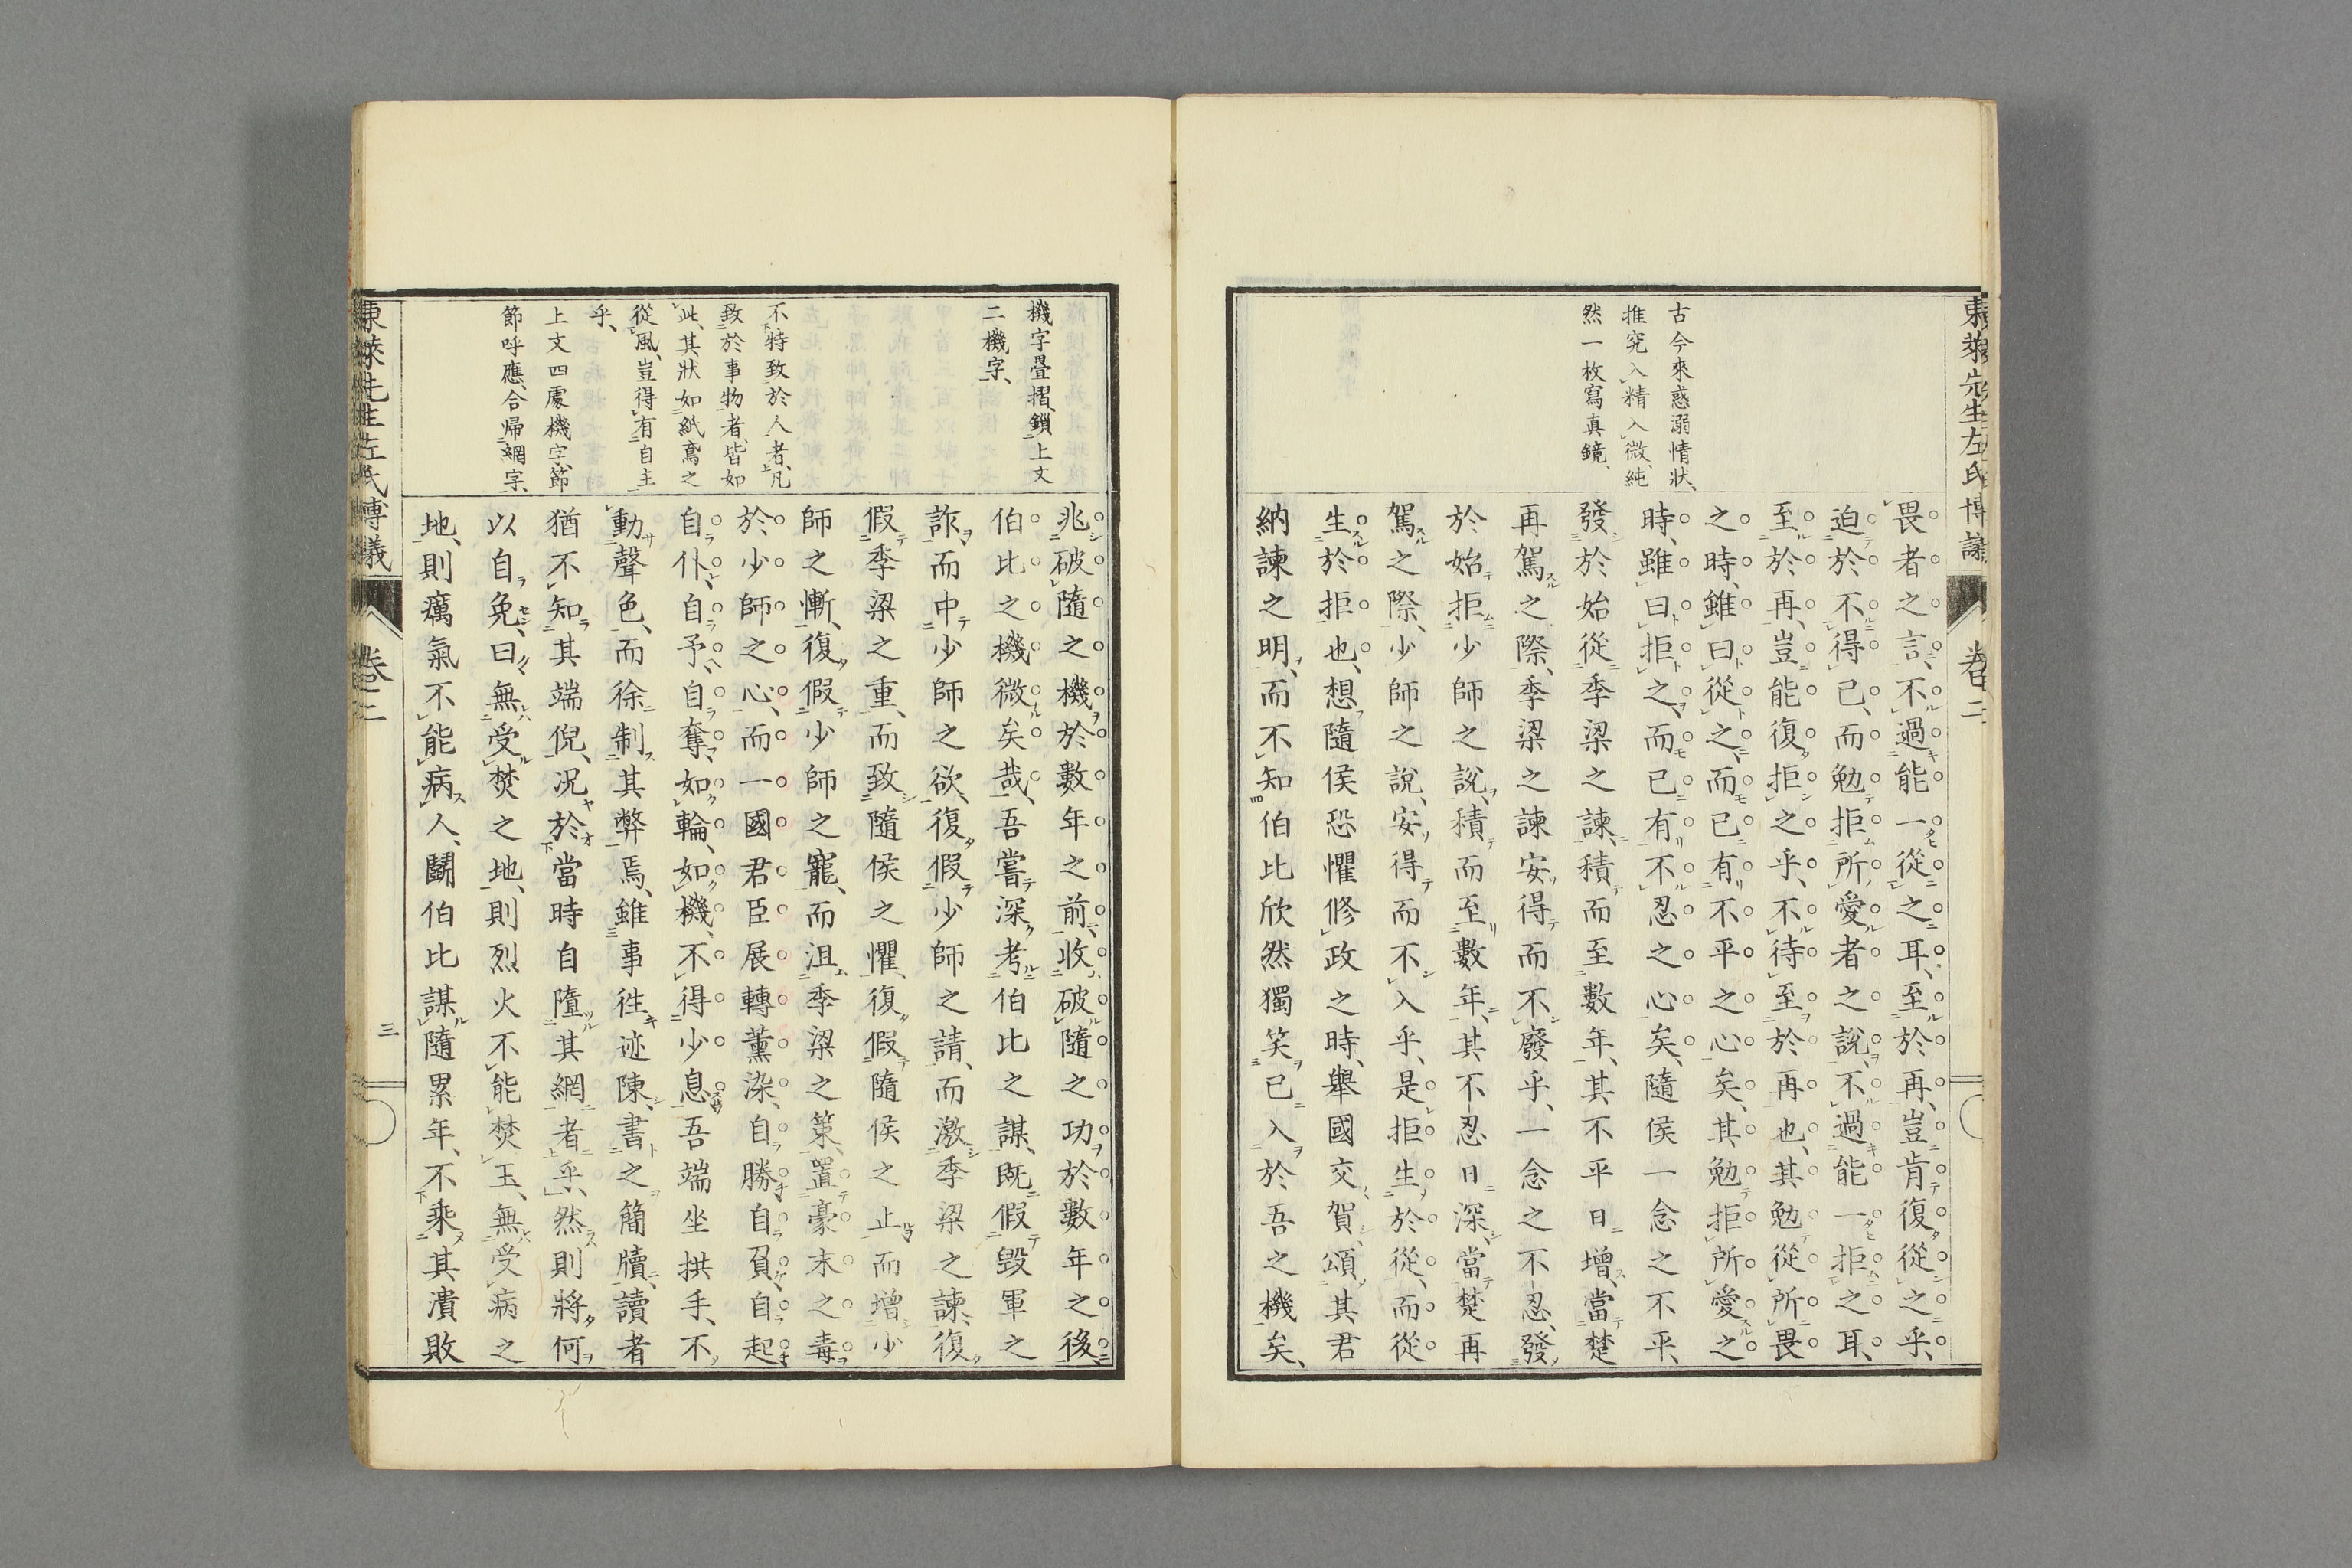 東萊先生左氏博議
卷二
古今來惑溺情狀、
推究入精入微、純
然一枚寫真鏡、
畏者之言、不過能一從之耳、至於再、豈肯復從之乎、
迫於不得已、而勉拒所愛者之說、不過能一拒之耳、
至於再、豈能復拒之乎、不待至於再也、其勉從所畏
之時、雖曰從之、而已有不平之心矣、其勉拒所愛之
時、雖曰拒之、而已有不忍之心矣、隨侯一念之不平、
發於始從季梁之諫、積而至數年、其不平日增、當楚
再駕之際、季梁之諫安得而不廢乎、一念之不忍、發
於始拒少師之說、積而至數年、其不忍日深、當楚再
駕之際、少師之說、安得而不入乎、是拒生於從、而從
生於拒也、想隨侯恐懼修政之時、舉國交賀、頌其君
納諫之明、而不知伯比欣然獨笑、已入於吾之機矣、
機字疊摺、鎖上文
二機字、
不特致於人者、凡
致於事物者、皆如
此、其狀如紙鳶之
從風、豈得有自主
乎、
上文四處機字、節
節呼應、合歸網字、
兆破隨之機於數年之前、收破隨之功於數年之後、
伯比之機微矣哉、吾嘗深考伯比之謀、既假毀軍之
詐、而中少師之欲、復假少師之請、而激季梁之諫、復
假季梁之重、而致隨侯之懼、復假隨侯之止而增少
師之慚、復假少師之寵、而沮季梁之策、置豪末之毒
於少師之心、而一國君臣展轉薰染、自勝自負、自起
自仆、自予、自奪、如輪、如機、不得少息、吾端坐拱手、不
動聲色、而徐制其弊焉、雖事徃迹陳、書之簡牘、讀者
猶不知其端倪、況於當時自墮其網者乎、然則將何
以自免、曰無受焚之地、則烈火不能焚玉、無受病之
地、則癘氣不能病人、鬬伯比謀隨累年、不乘其潰敗
東萊先生左氏博議
卷二
三